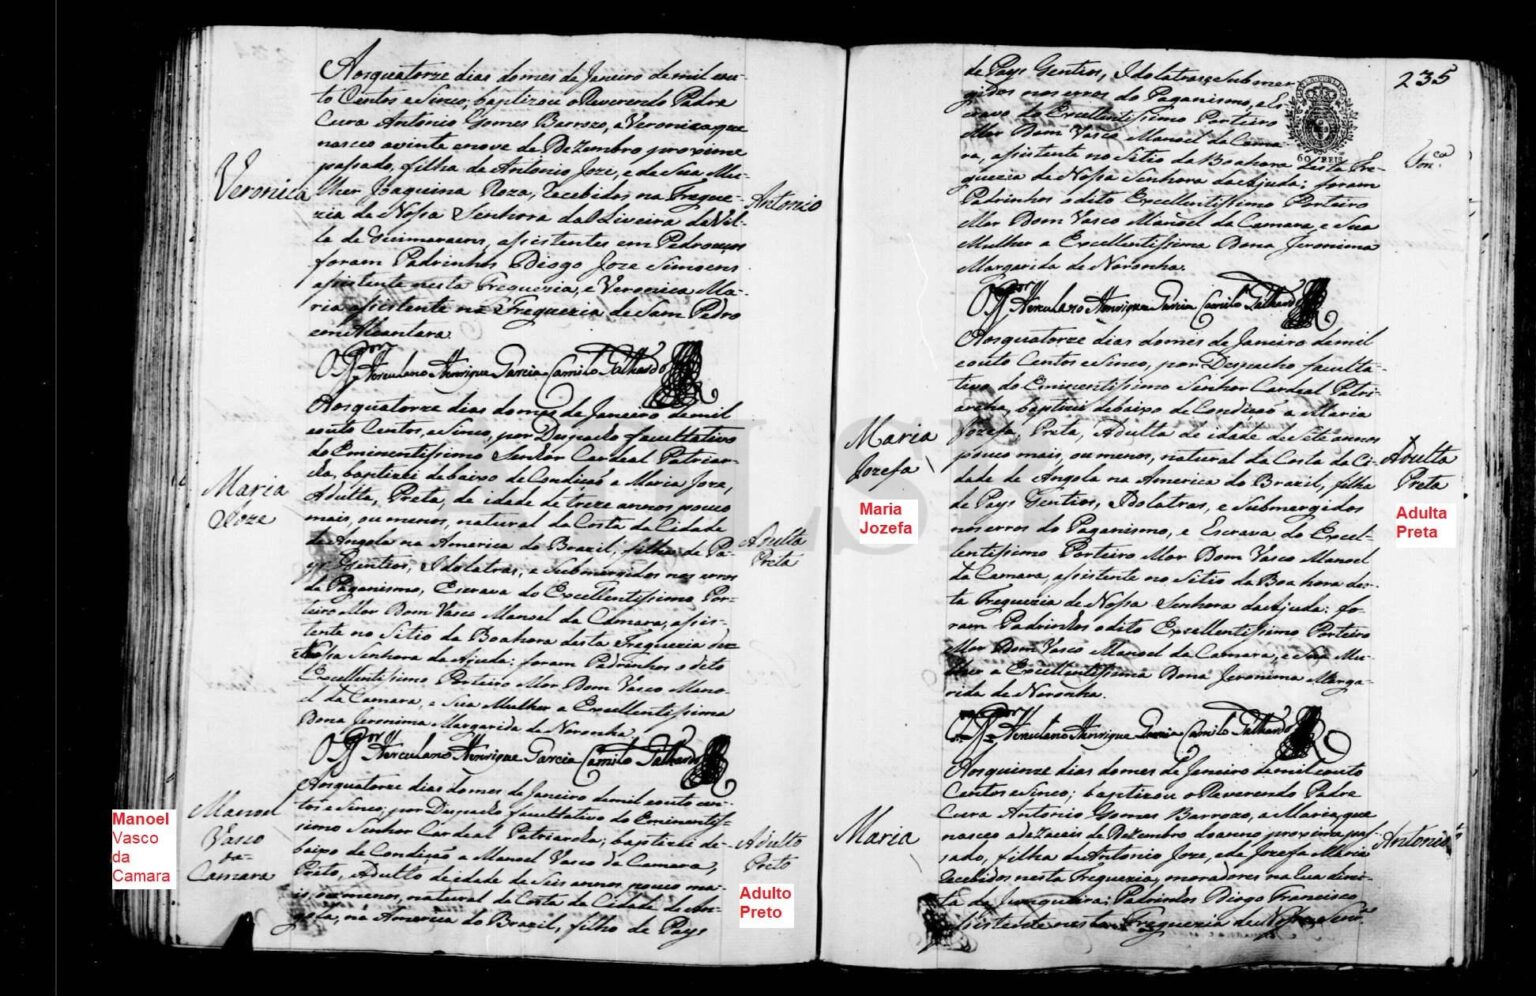 Veronica
Aosquatorze dias domes de Janeiro demil oou-
to Centos e Sinco, baptizou o Reverendo Padre
Cura Antonio Gomes Barrozo, a Veronica que
nasceo avinte enove de Dezembro proximo
pasado, filha de Antonio Joze, e de Sua Mu-
lher Joaquina Roza, recebidos na Fregue-
zia de Nosa Senhora da Oliveira da Vil-
la de Guimaraens, asistentes em Pedrouços
foram Padrinhos Diogo Joze Simoens
asistente nesta Freguezia, e Veronica Ma-
ria asistente na Freguezia de Sam Pedro
em Alcantara
Antonio
O Por Herculano Henrique Garcia Camilo Galhardo
Maria
Joze
Aosquatorze dias domes de Janeiro demil
eouto Centos, e Sinco, por Despacho facultativo
do Eminentissimo Senhor Cardeal Patriar-
cha, baptizei debaixo de Condição a Maria Joze,
Adulta, Preta, de idade de treze annos pouco
mais, ou menos, natural da Costa da Cidade
de Angola na America do Brazil, filha de Pa-
ys Gentios, Idolatras, e Submergidos nos erros
do Paganismo, Escrava do Excellentissimo Por-
teiro Mor Dom Vasco Manoel da Camara, asis-
tente no Sitio da Boahora desta Freguezia de
Nosa Senhora da Ajuda: foram Padrinhos o dito
Excellentissimo Porteiro Mor Dom Vasco Mano-
el da Camara, e Sua Mulher a Excellentissima
Dona Jeronima Margarida de Noronha,
Adulta
Preta
O Por Herculano Henrique Garcia Camilo Galhardo
Manoel
Vasco
da
Camara
Manoel
Vasco
da
Camara
Aosquatorze dias domes de Janeiro demil eouto cen-
tos e Sinco; por Despacho facultativo do Eminentis-
simo Senhor Cardeal Patriarcha; baptizei de-
baixo de Condição a Manoel Vasco da Camara,
Preto, Adulto de idade de Seis annos pouco ma-
is, ou menos, natural da Costa da Cidade de An-
gola, na America do Brazil, filho de Pays
Adulto
Preto
Adulto
Preto
235
60 REIS
de Pays Gentios, Idolatras e Submer-
gidos nos erros do Paganismo, e Es-
cravo do Excellentissimo Porteiro
Mor Dom Vasco Manoel da Cama-
ra, asistente no Sitio da Boahora desta Fre-
guezia de Nosa Senhora da Ajuda; foram
Padrinhos o dito Excellentissimo Porteiro
Mor Dom Vasco Manoel da Camara, e Sua
Mulher a Excellentissima Dona Jeronima
Margarida de Noronha.
O Por Herculano Henrique Garcia Camilo Galhardo
Maria
Jozefa
Maria
Jozefa
Aosquatorze dias domes de Janeiro demil
eouto Centos e Sinco, por Despacho faculta-
tivo do Eminentissimo Senhor Cardeal Patri-
archa, baptizei debaixo de Condição a Maria
Jozefa, Preta, Adulta de idade de Sete annos
pouco mais, ou menos, natural da Costa da Ci-
dade de Angola na America do Brazil, filha
de Pays Gentios, Idolatras, e Submergidos
nos erros do Paganismo, e Escrava do Excel-
lentissimo Porteiro Mor Dom Vasco Manoel
da Camara, asistente no Sitio da Boahora des-
ta Freguezia de Nosa Senhora da Ajuda: fo-
ram Padrinhos o dito Excellentissimo Porteiro
Mor Dom Vasco Manoel da Camara, e Sua Mu-
lher a Excellentissima Dona Jeronima Marga-
rida de Noronha.
Adulta
Preta
Adulta
Preta
O Por Herculano Henrique Garcia Camilo Galhardo
Maria
Aosquinze dias domes de Janeiro demil eouto
Centos e Sinco; baptizou o Reverendo Padre
Cura Antonio Gomes Barrozo, a Maria, que
nasceo a dezaceis de Dezembro do anno proximo pas-
sado, filha de Antonio Joze, e de Jozefa Maria
recebidos nesta Freguezia, moradores na Rua direi-
ta da Junqueira; Padrinhos Diogo Francisco
asistente nesta Freguezia de Nosa Senra
Antonio